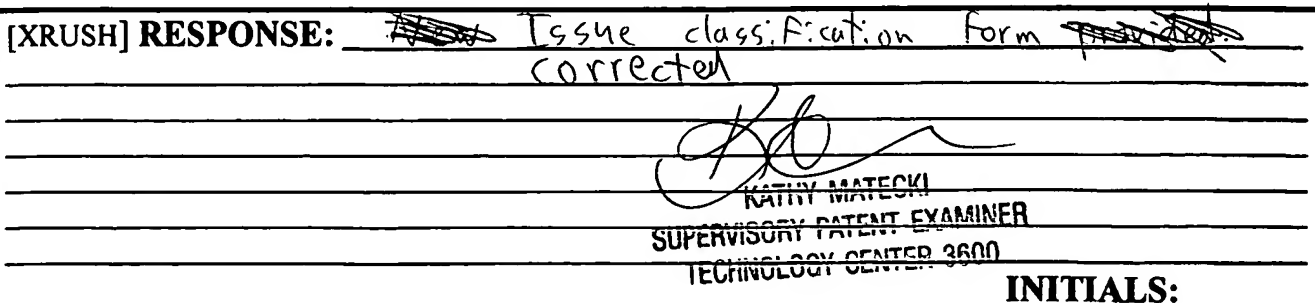 [XRUSH] RESPONSE: New Issue classification form provided.
corrected
KATHY MATECKI
SUPERVISORY PATENT EXAMINER
TECHNOLOGY CENTER 3600
INITIALS: